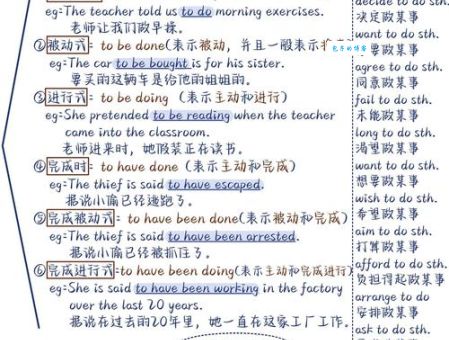 eg=The teacher told us to do morning exercises.
老师让我们做早操。
②被动式: to be done(表示被动, 并且一般表示将
eg=The car to be bought is for his sister.
要买的这辆车是给他的姐姐的。
③进行式: to be doing (表示主动和进行)
eg=She pretended to be reading when the teacher
came into the classroom.
老师进来时, 她假装正在读书。
④完成时: to have done (表示主动和完成)
eg=The thief is said to have escaped.
据说小偷已经逃跑了。
⑤完成被动式: to have been done(表示被动和完成)
eg=The thief is said to have been arrested.
据说小偷已经被抓住了。
⑥完成进行式=to have been doing(表示主动和完成进行)
eg=She is said to have been working in the factory
over the last 20 years.
据说在过去的20年里, 她一直在这家工厂工作。
decide to do sth.
决定做某事
want to do sth.
要做某事
agree to do sth.
同意做某事
fail to do sth.
未能做某事
long to do sth.
渴望做某事
want to do sth.
想要做某事
wish to do sth.
希望做某事
aim to do sth.
打算做某事
afford to do sth.
负担得起做某事
arrange to do
安排做某事
ask to do sth.